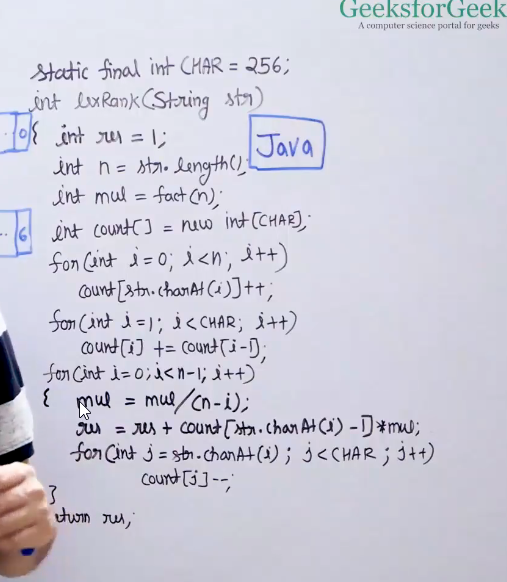 GeeksforGeek
A computer science portal for geeks
static final int CHAR = 256;
int lexRank(String str)
0 { int res = 1;
Java
int n = str.length();
int mul = fact(n);
6 int count[] = new int[CHAR];
for(int i=0; i<n; i++)
count[str.charAt(i)]++;
for(int i=1; i<CHAR; i++)
count[i] += count[i-1];
for(int i=0; i<n-1; i++)
{ mul = mul/(n-i);
res = res + count[str.charAt(i) -1]*mul;
for(int j = str.charAt(i); j<CHAR; j++)
count[j]--;
}
eturn res;